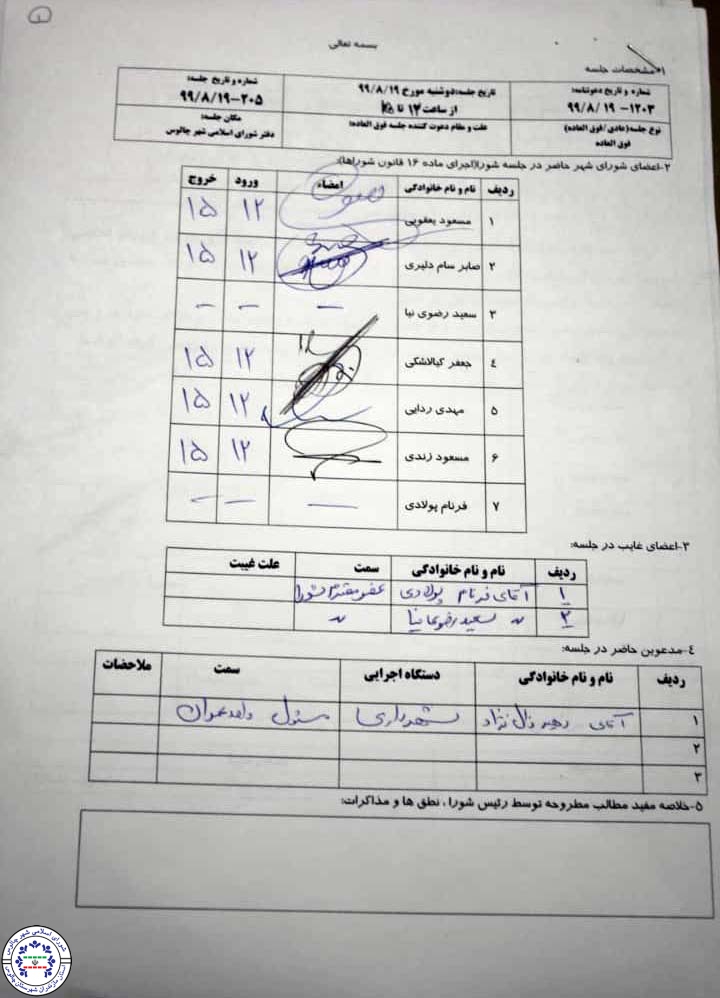 ۱
بسمه تعالی
۱-مشخصات جلسه
شماره و تاریخ دعوتنامه: ۱۲۰۳- ۹۹/۸/۱۹
تاریخ جلسه:دوشنبه مورخ ۹۹/۸/۱۹ از ساعت ۱۲ تا ۱۵
شماره و تاریخ جلسه: ۲۰۵-۹۹/۸/۱۹
نوع جلسه(عادی/فوق العاده) فوق العاده
علت و مقام دعوت کننده جلسه فوق العاده:
مکان جلسه: دفتر شورای اسلامی شهر چالوس
۲-اعضای شورای شهر حاضر در جلسه شورا(اجرای ماده ۱۶ قانون شوراها):
ردیف نام و نام خانوادگی امضاء ورود خروج
۱ مسعود یعقوبی ۱۲ ۱۵
۲ صابر سام دلیری ۱۲ ۱۵
۳ سعید رضوی نیا - - -
۴ جعفر کیالاشکی ۱۲ ۱۵
۵ مهدی ردایی ۱۲ ۱۵
۶ مسعود زندی ۱۲ ۱۵
۷ فرنام پولادی - - -
۳-اعضای غایب در جلسه:
ردیف نام و نام خانوادگی سمت علت غیبت
۱ آقای فرنام پولادی عضو محترم شورا
۲ ״ سعید رضوی نیا ״
۴-مدعوین حاضر در جلسه:
ردیف نام و نام خانوادگی دستگاه اجرایی سمت ملاحضات
۱ آقای نژاد شهرداری مسئول واحد عمران
۲
۳
۵-خلاصه مفید مطالب مطروحه توسط رئیس شورا ، نطق ها و مذاکرات:
شورای اسلامی شهر چالوس
استان مازندران شهرستان چالوس